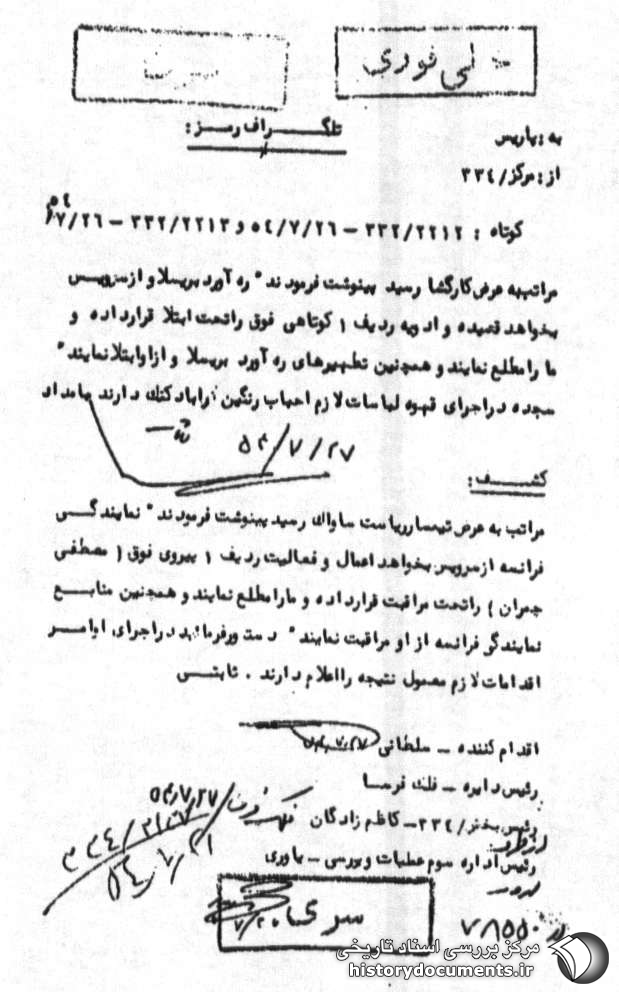 خیلی فوری
تلگراف رمز:
به: پاریس
از: مرکز/ ۳۳٤
۵٤
کوتاه : ۳۳۲/۲۲۱۲ – ۵٤/۷/۲٦ و ۳۳۲/۲۲۱۳ – ۷/۲٦/
مراتب به عرض کارگشا رسید پینوشت فرمودند " ره آورد بریسلا و از سرویس
بخواهد قصیده و ادویه ردیف ۱ کوتاهی فوق را تحت ابتلا قرار داده و
ما را مطلع نمایند و همچنین تطهیرهای ره آورد بریسلا و از او ابتلا نمایند "
سجده در اجرای قهوه لباسات لازم احباب رنگین را بادکنک دارند بامداد
۵٤/۷/۲۷
کشف :
مراتب به عرض تیمسار ریاست ساواک رسید پینوشت فرمودند " نمایندگی
فرانسه از سرویس بخواهد اعمال و فعالیت ردیف ۱ پیروی فوق ( مصطفی
چمران ) را تحت مراقبت قرار داده و ما را مطلع نمایند و همچنین منابع
نمایندگی فرانسه از او مراقبت نمایند " دستور فرمائید در اجرای اوامر
اقدامات لازم معمول نتیجه را اعلام دارند . ثابتی
اقدام کننده – سلطانی
رئیس دایره – فلک فرسا
رئیس بخش/ ۳۳٤ – کاظم زادگان
رئیس اداره سوم عملیات و بررسی – یاوری
۵٤/۷/۲۷
سری
۷۸۵۵۰
مرکز بررسی اسناد تاریخی
historydocuments.ir